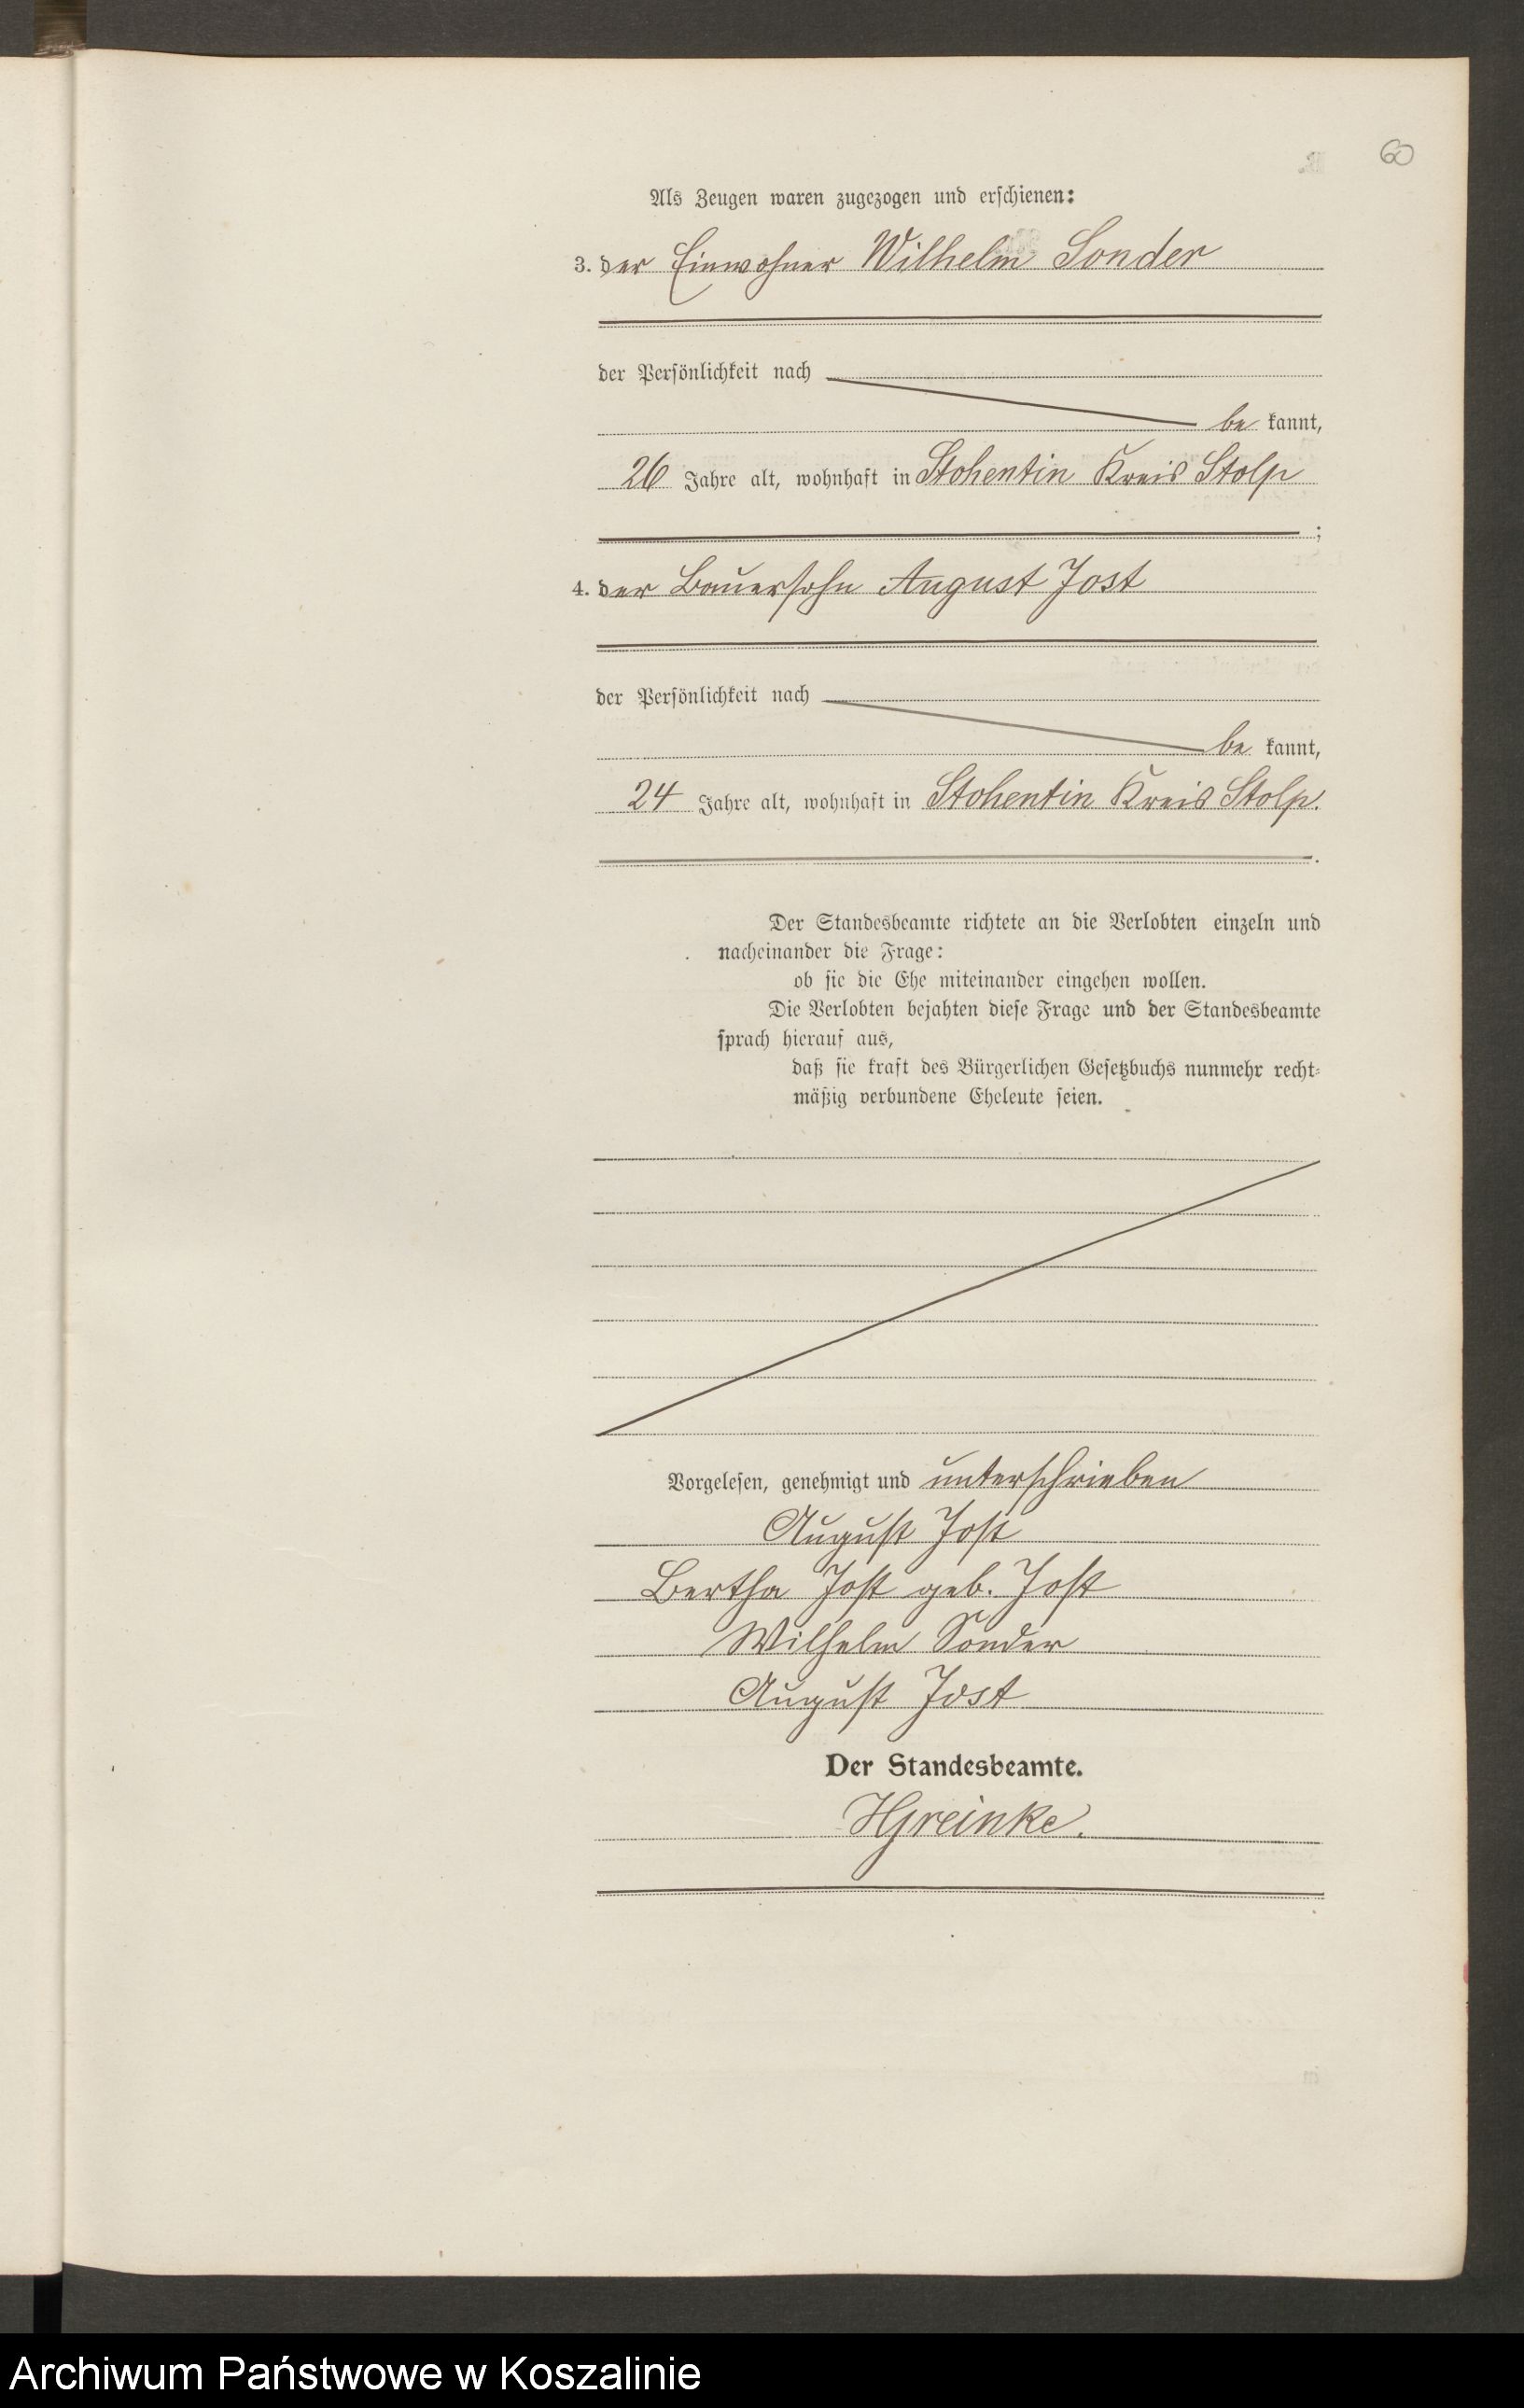 60
Als Zeugen waren zugezogen und erschienen:
3. der Einwohner Wilhelm Sonder
der Persönlichkeit nach
be kannt,
26 Jahre alt, wohnhaft in Stohentin Kreis Stolp
;
4. der Bauersohn August Jost
der Persönlichkeit nach
be kannt,
24 Jahre alt, wohnhaft in Stohentin Kreis Stolp.
.
Der Standesbeamte richtete an die Verlobten einzeln und
nacheinander die Frage:
ob sie die Ehe miteinander eingehen wollen.
Die Verlobten bejahten diese Frage und der Standesbeamte
sprach hierauf aus,
daß sie kraft des Bürgerlichen Gesetzbuchs nunmehr recht-
mäßig verbundene Eheleute seien.
Vorgelesen, genehmigt und unterschrieben
August Jost
Bertha Jost geb. Jost
Wilhelm Sonder
August Jost
Der Standesbeamte.
HGreinke.
Archiwum Państwowe w Koszalinie